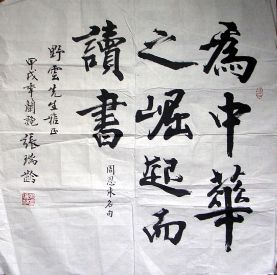 為中華
之崛起而
讀書
周恩來名句
野雲先生指正
甲戌年
張瑞齡